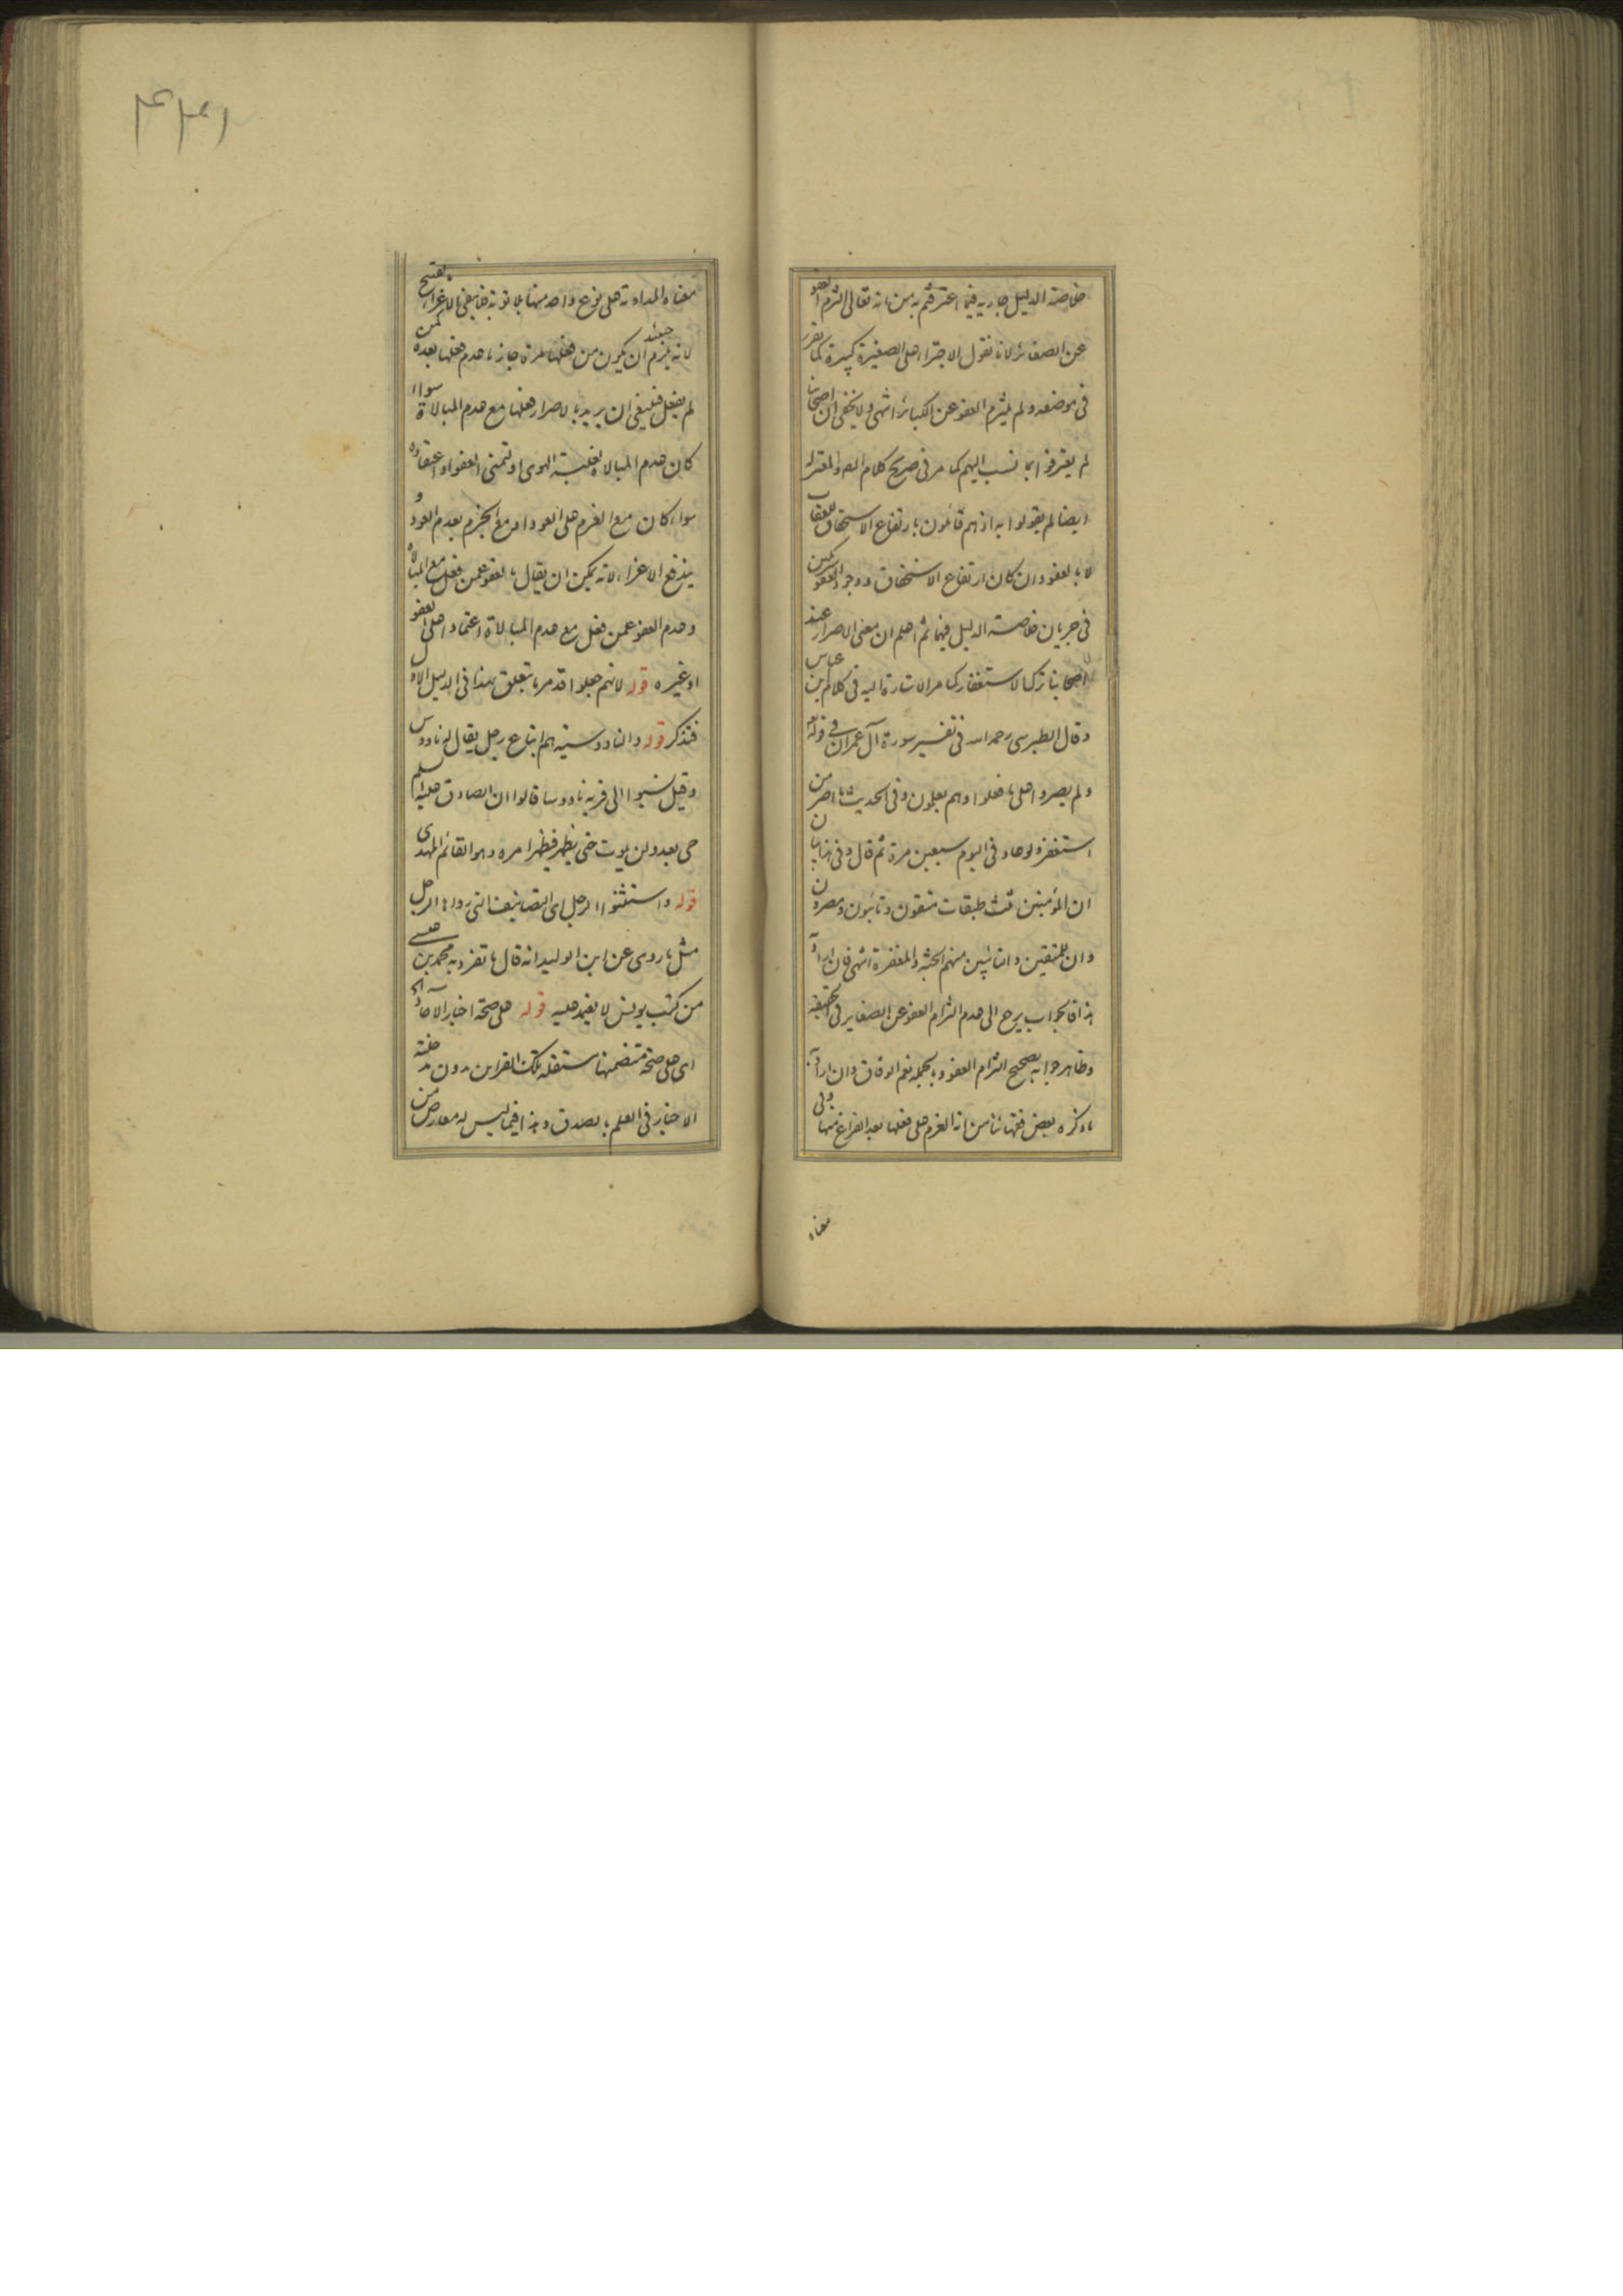 خلاصة الدليل جارية فيما اعترفتم به من انه تعالى التزم العفو
عن الصغائر لانا نقول الاجتراء على الصغيرة كبيرة كما تقرر
فى موضعه ولم يلتزم العفو عن الكبائر انتهى ولا يخفى ان اصحابنا
لم يعترفوا بما نسب اليهم كما مر فى صريح كلام المص والمعتزلة
ايضا لم يقولوا به اذ هم قائلون بارتفاع الاستحقاق للعقاب
لا بالعفو وان كان ارتفاع الاستحقاق ووجود العفو
فى جريان خلاصة الدليل فيهما ثم اعلم ان معنى الاصرار عند
اصحابنا ترك الاستغفار كما مر الاشارة اليه فى كلام ابن عباس
وقال الطبرسى رحمه الله فى تفسير سورة آل عمران فى قوله
ولم يصروا على ما فعلوا وهم يعلمون وفى الحديث ما اصر من
استغفر ولو عاد فى اليوم سبعين مرة ثم قال وفى هذا بيان
ان المؤمنين ثلث طبقات متقون وتائبون ومصرون
وان للمتقين والتائبين منهم الجنة والمغفرة انتهى فان اراد
هذا فالجواب يرجع الى عدم التزام العفو عن الصغاير فى الحقيقة
وظاهر جوابه تصحيح التزام العفو وبالجملة نعم الوفاق وان اراد به
ما ذكره بعض فقهائنا من انه العزم على فعلها بعد الفراغ منها وفى
معناه
معناه المداومة على نوع واحد منها بلا توبة فما بقى الاغراء بفتح
لانه يلزم حينئذ ان يكون من فعلها مرة جاز ما عدم فعلها بعده كمن
لم يفعل فينبغى ان يريد بالاصرار فعلها مع عدم المبالاة سواء
كان عدم المبالاة لغلبة الهوى او لتمنى العفو او اعتقاده
سواء كان مع العزم على العود او مع الجزم بعدم العود و
يندفع الاغراء لانه يمكن ان يقال بالعفو عمن فعل مع المبالاة
وعدم العفو عمن فعل مع عدم المبالاة اعتمادا على العفو
او غيره قوله لانهم جعلوا قد مر ما يتعلق بهذا فى الدليل الاول
فتذكر قوله والناووسية هم اتباع رجل يقال له ناووس
وقيل نسبوا الى قرية ناووسا قالوا ان الصادق عليه السلم
حى بعد ولن يموت حتى يظهر فيظهر امره وهو القائم المهدى
قوله واستثنوا الرجل اى التصانيف التى رواها الرجل
مثل ما روى عن ابن الوليد انه قال ما تفرد به محمد بن عيسى
من كتب يونس لا يعتمد عليه قوله على صحة اخبار الآحاد
اى على صحة متضمنها مستقلة تلك القراين بدون
الاخبار فى العلم بالصدق وهذا فيما ليس له معارض من